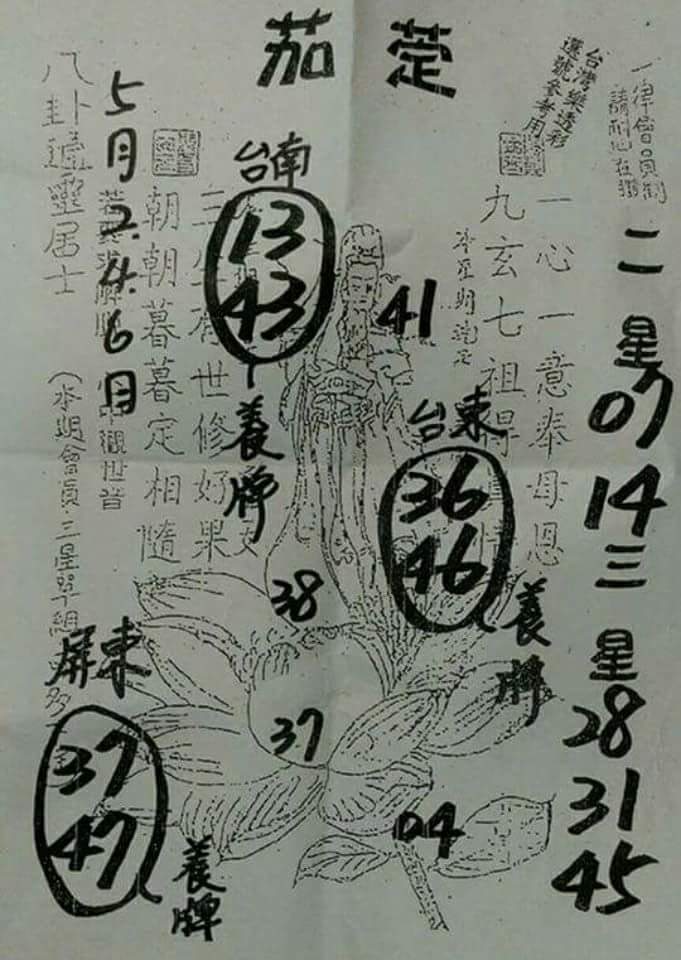 茄萣
台灣樂透彩
選號參考用
一律會員制
二星
07
14
三星
28
31
45
一心一意奉母恩
九玄七祖得
41
台東
36
46
養牌
台南
13
43
養牌
世修好果
朝朝暮暮定相隨
觀世音
5月2.4.6月
八卦通靈居士
(本期會員三星單組
38
37
04
屏東
37
47
養牌